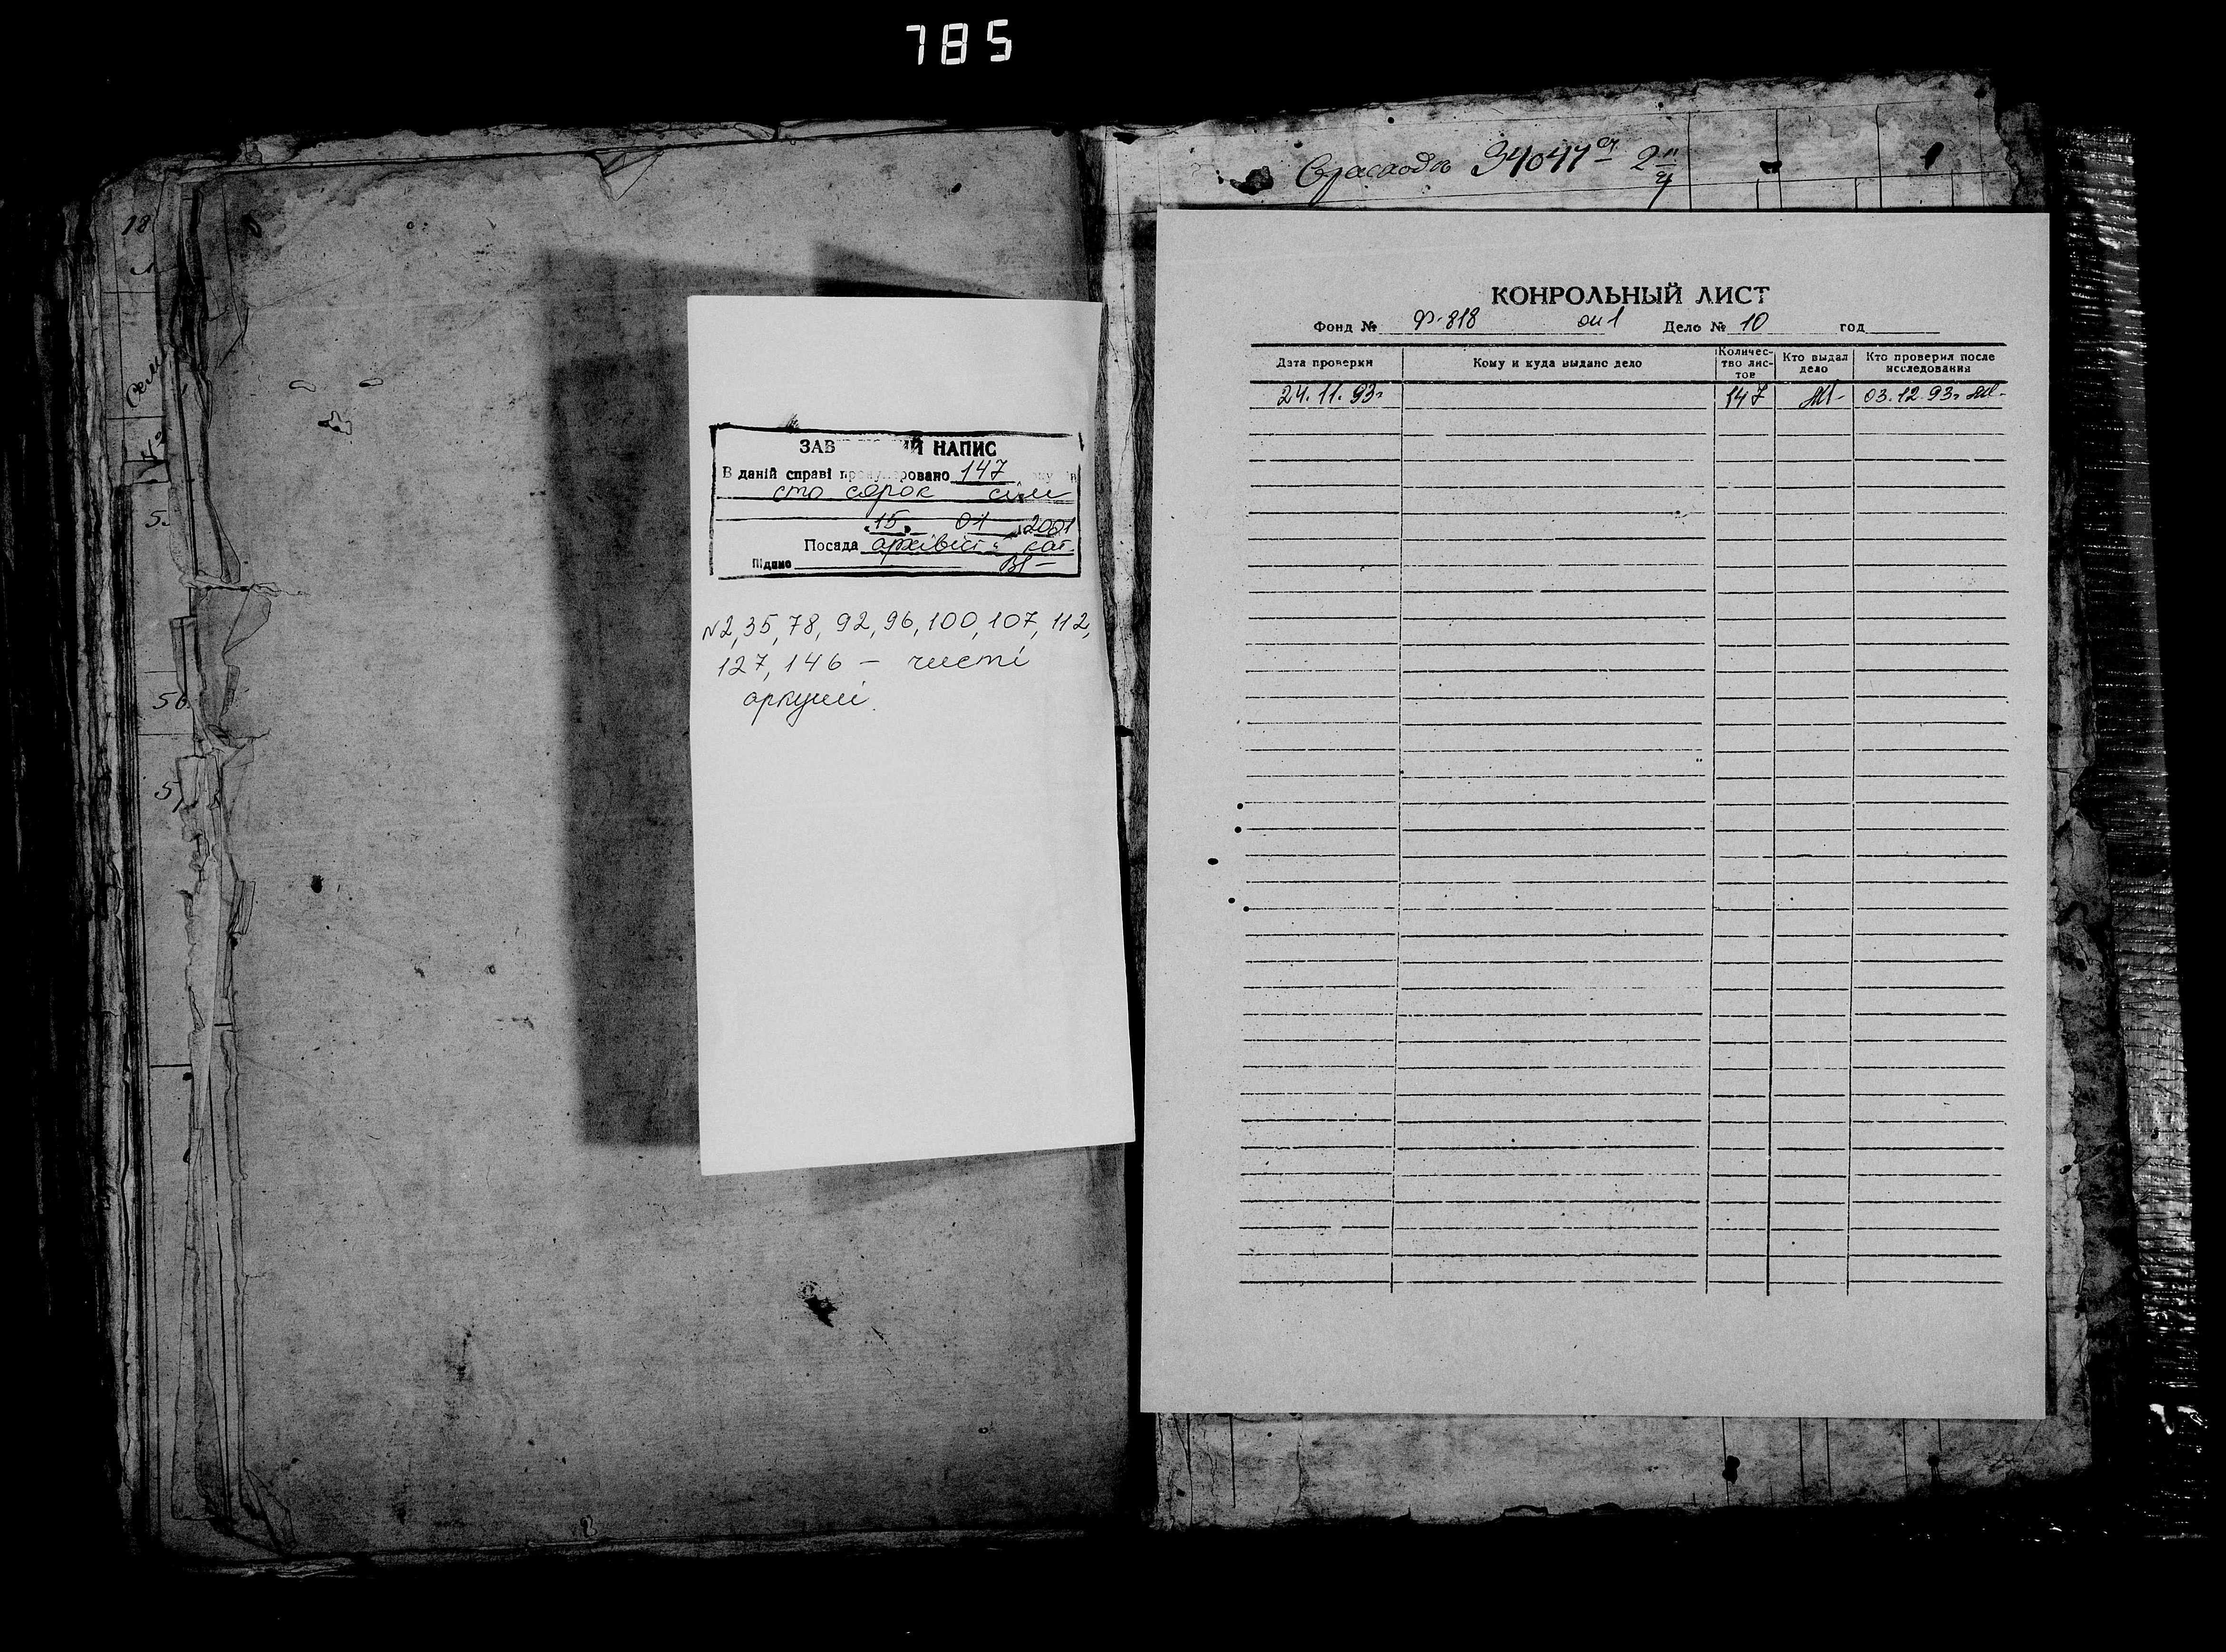 785
18
5.
56.
5
ЗАВ ИЙ НАПИС
В даній справі пронумеровано 147
сто сорок сім
15 01 2001
Посада архівіст кат.
Підпис
N2, 35, 78, 92, 96, 100, 107, 112,
127, 146 – чисті
аркуші.
34047
КОНРОЛЬНЫЙ ЛИСТ
Фонд № Ф-818 оп 1 Дело № 10 год
Дата проверки Кому и куда выдано дело Количес-тво лис-тов Кто выдал дело Кто проверил после исследования
24.11.93г 147 03.12.93г